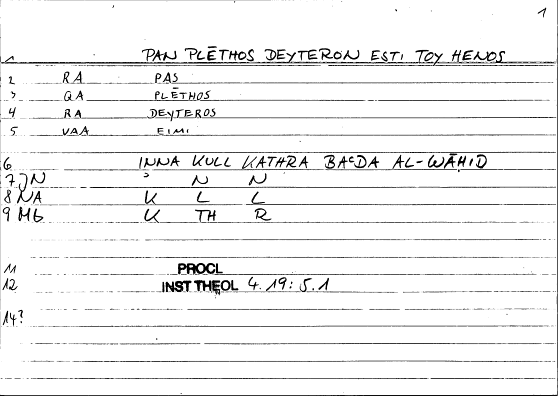 1
1 PAN PLĒTHOS DEYTERON ESTI TOY HENOS
2 RA PAS
3 QA PLĒTHOS
4 RA DEYTEROS
5 VAA EIMI
6 INNA KULL KATHRA BAʿDA AL-WĀḤID
7 JN ʾ N N
8 NA K L L
9 Mb K TH R
11 PROCL
12 INST THEOL 4.19: 5.1
14?